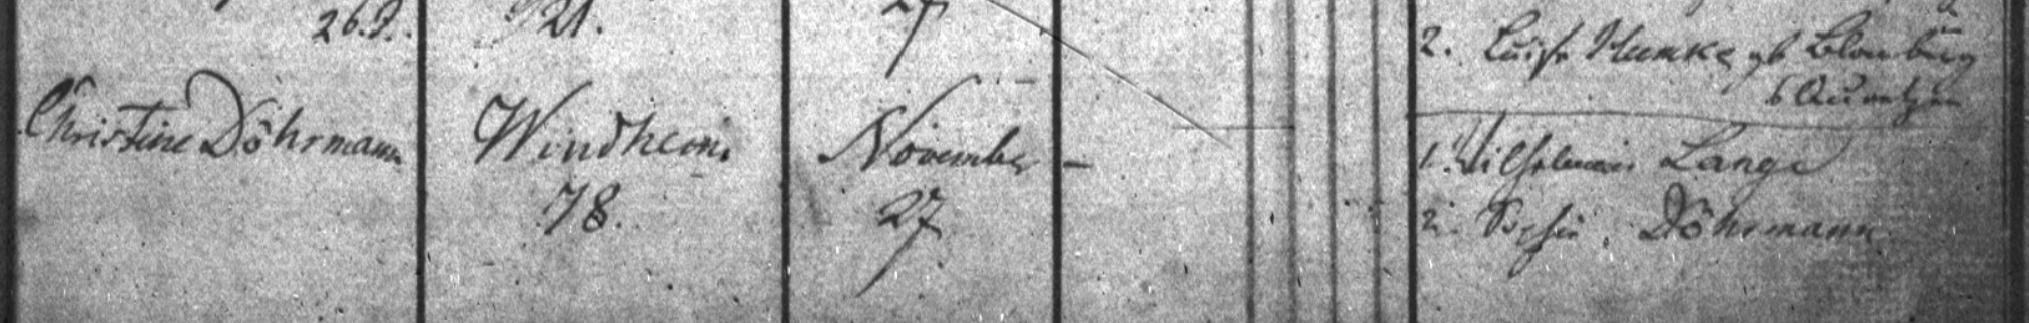 26.J.
21.
27
2. Luise Humke gb Blomberg
Christine Döhrmann
Windheim
78.
November
27
–
1. Wilhelmine Lange
2. Sophie Döhrmann